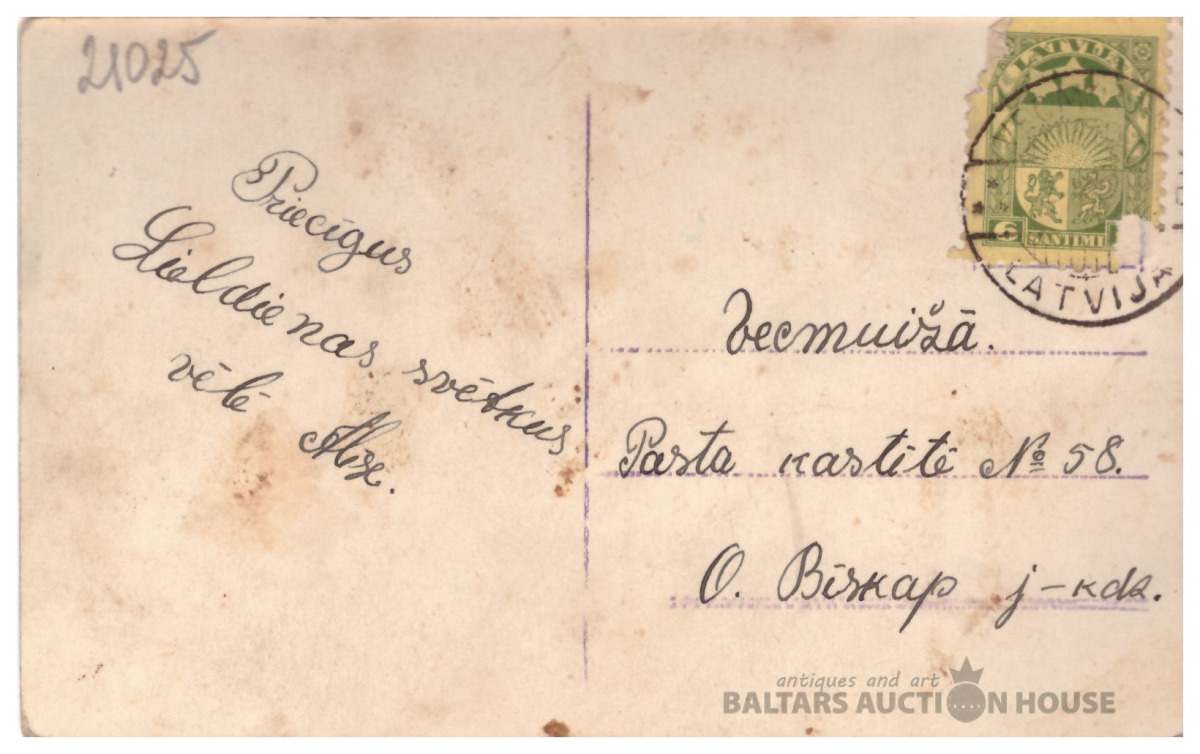 21025
Priecīgus
Lieldienas svētkus
vēlē
LATVIJA
6 SANTIMI
LATVIJA
Vecmuižā.
Pasta kastītē № 58.
O. Biskap j-kdz.
antiques and art
BALTARS AUCTION HOUSE